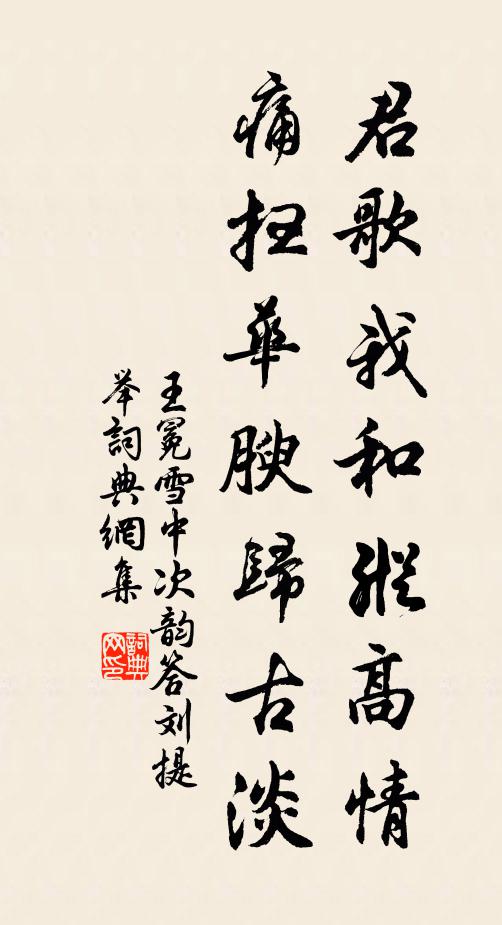 君歌我和縱高情
痛扫華腴歸古淡
王冕雪中次韵答刘提
举詞典網集
詞典網印